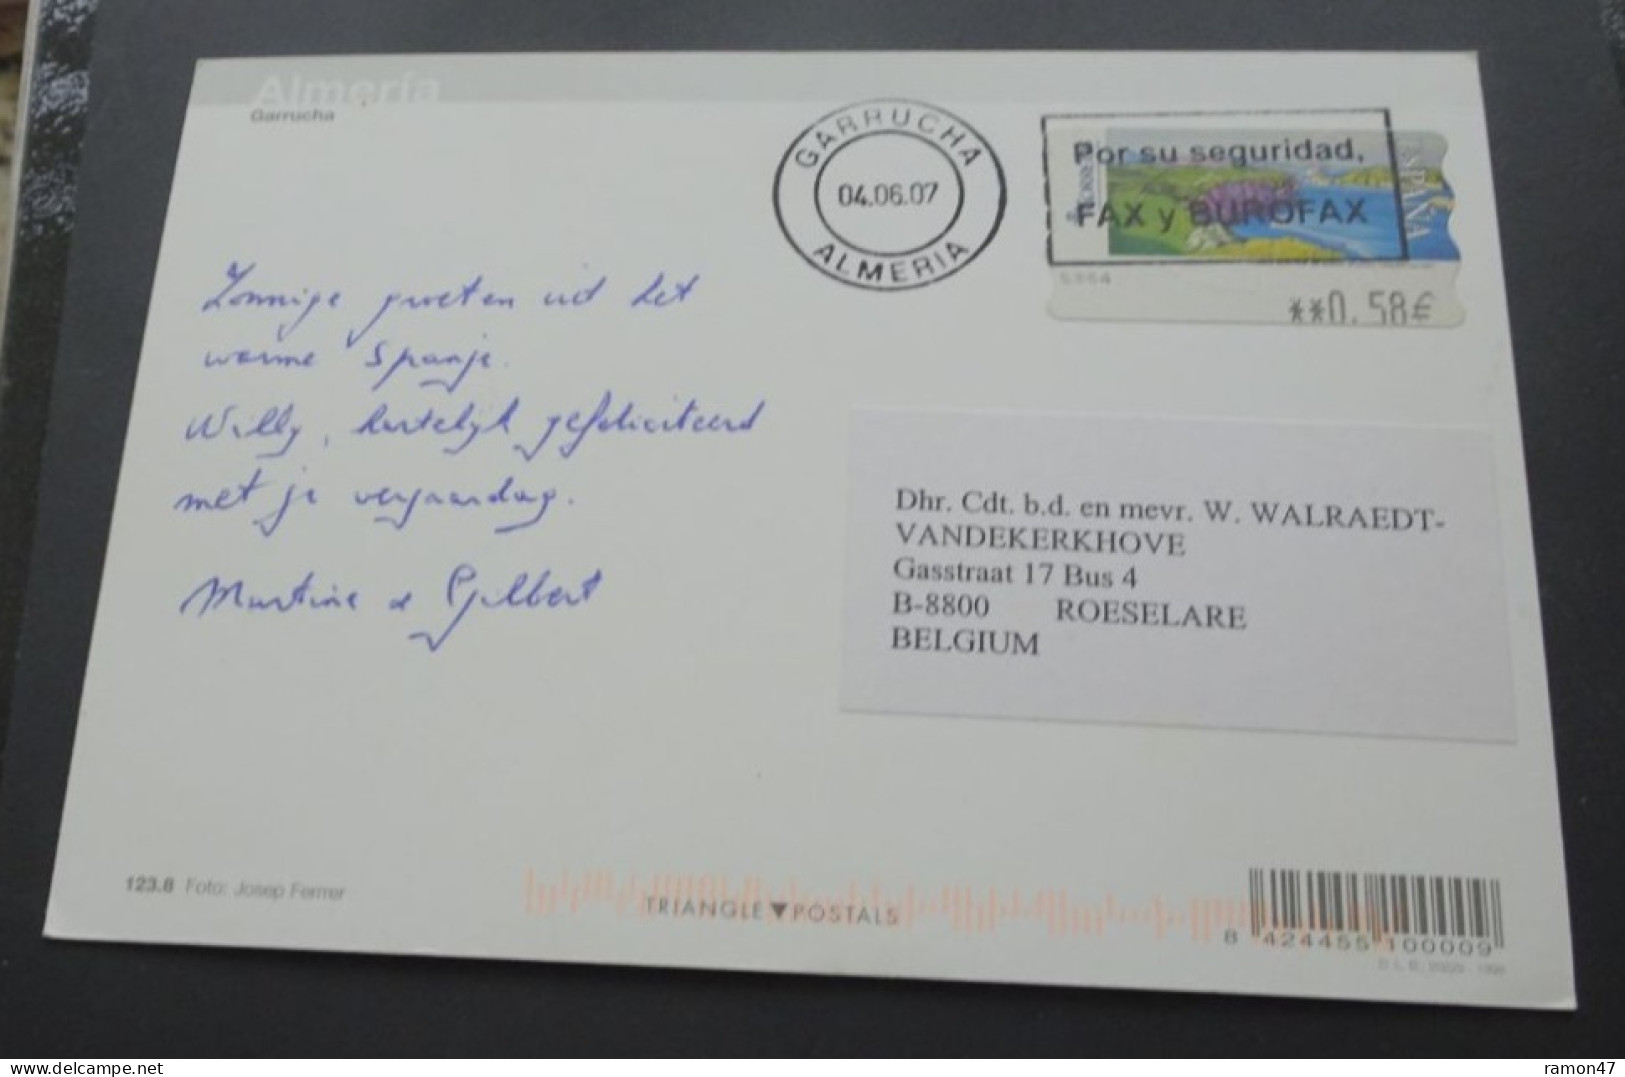 Almería
Garrucha
GARRUCHA
04.06.07
ALMERIA
Por su seguridad,
FAX y BUROFAX
CORREOS
ESPAÑA
**0.58€
Zonnige groeten uit het
warme Spanje.
Willy, hartelijk gefeliciteerd
met je verjaardag.
Martine & Gilbert
Dhr. Cdt. b.d. en mevr. W. WALRAEDT-
VANDEKERKHOVE
Gasstraat 17 Bus 4
B-8800 ROESELARE
BELGIUM
123.8 Foto: Josep Ferrer
TRIANGLE▼POSTALS
8 424455 100009
delcampe.net
ramon47